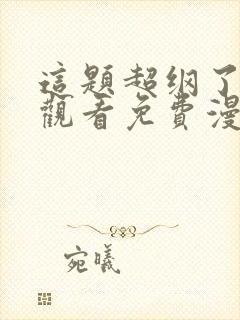 這題超纲了
觀看免費漫
宛曦